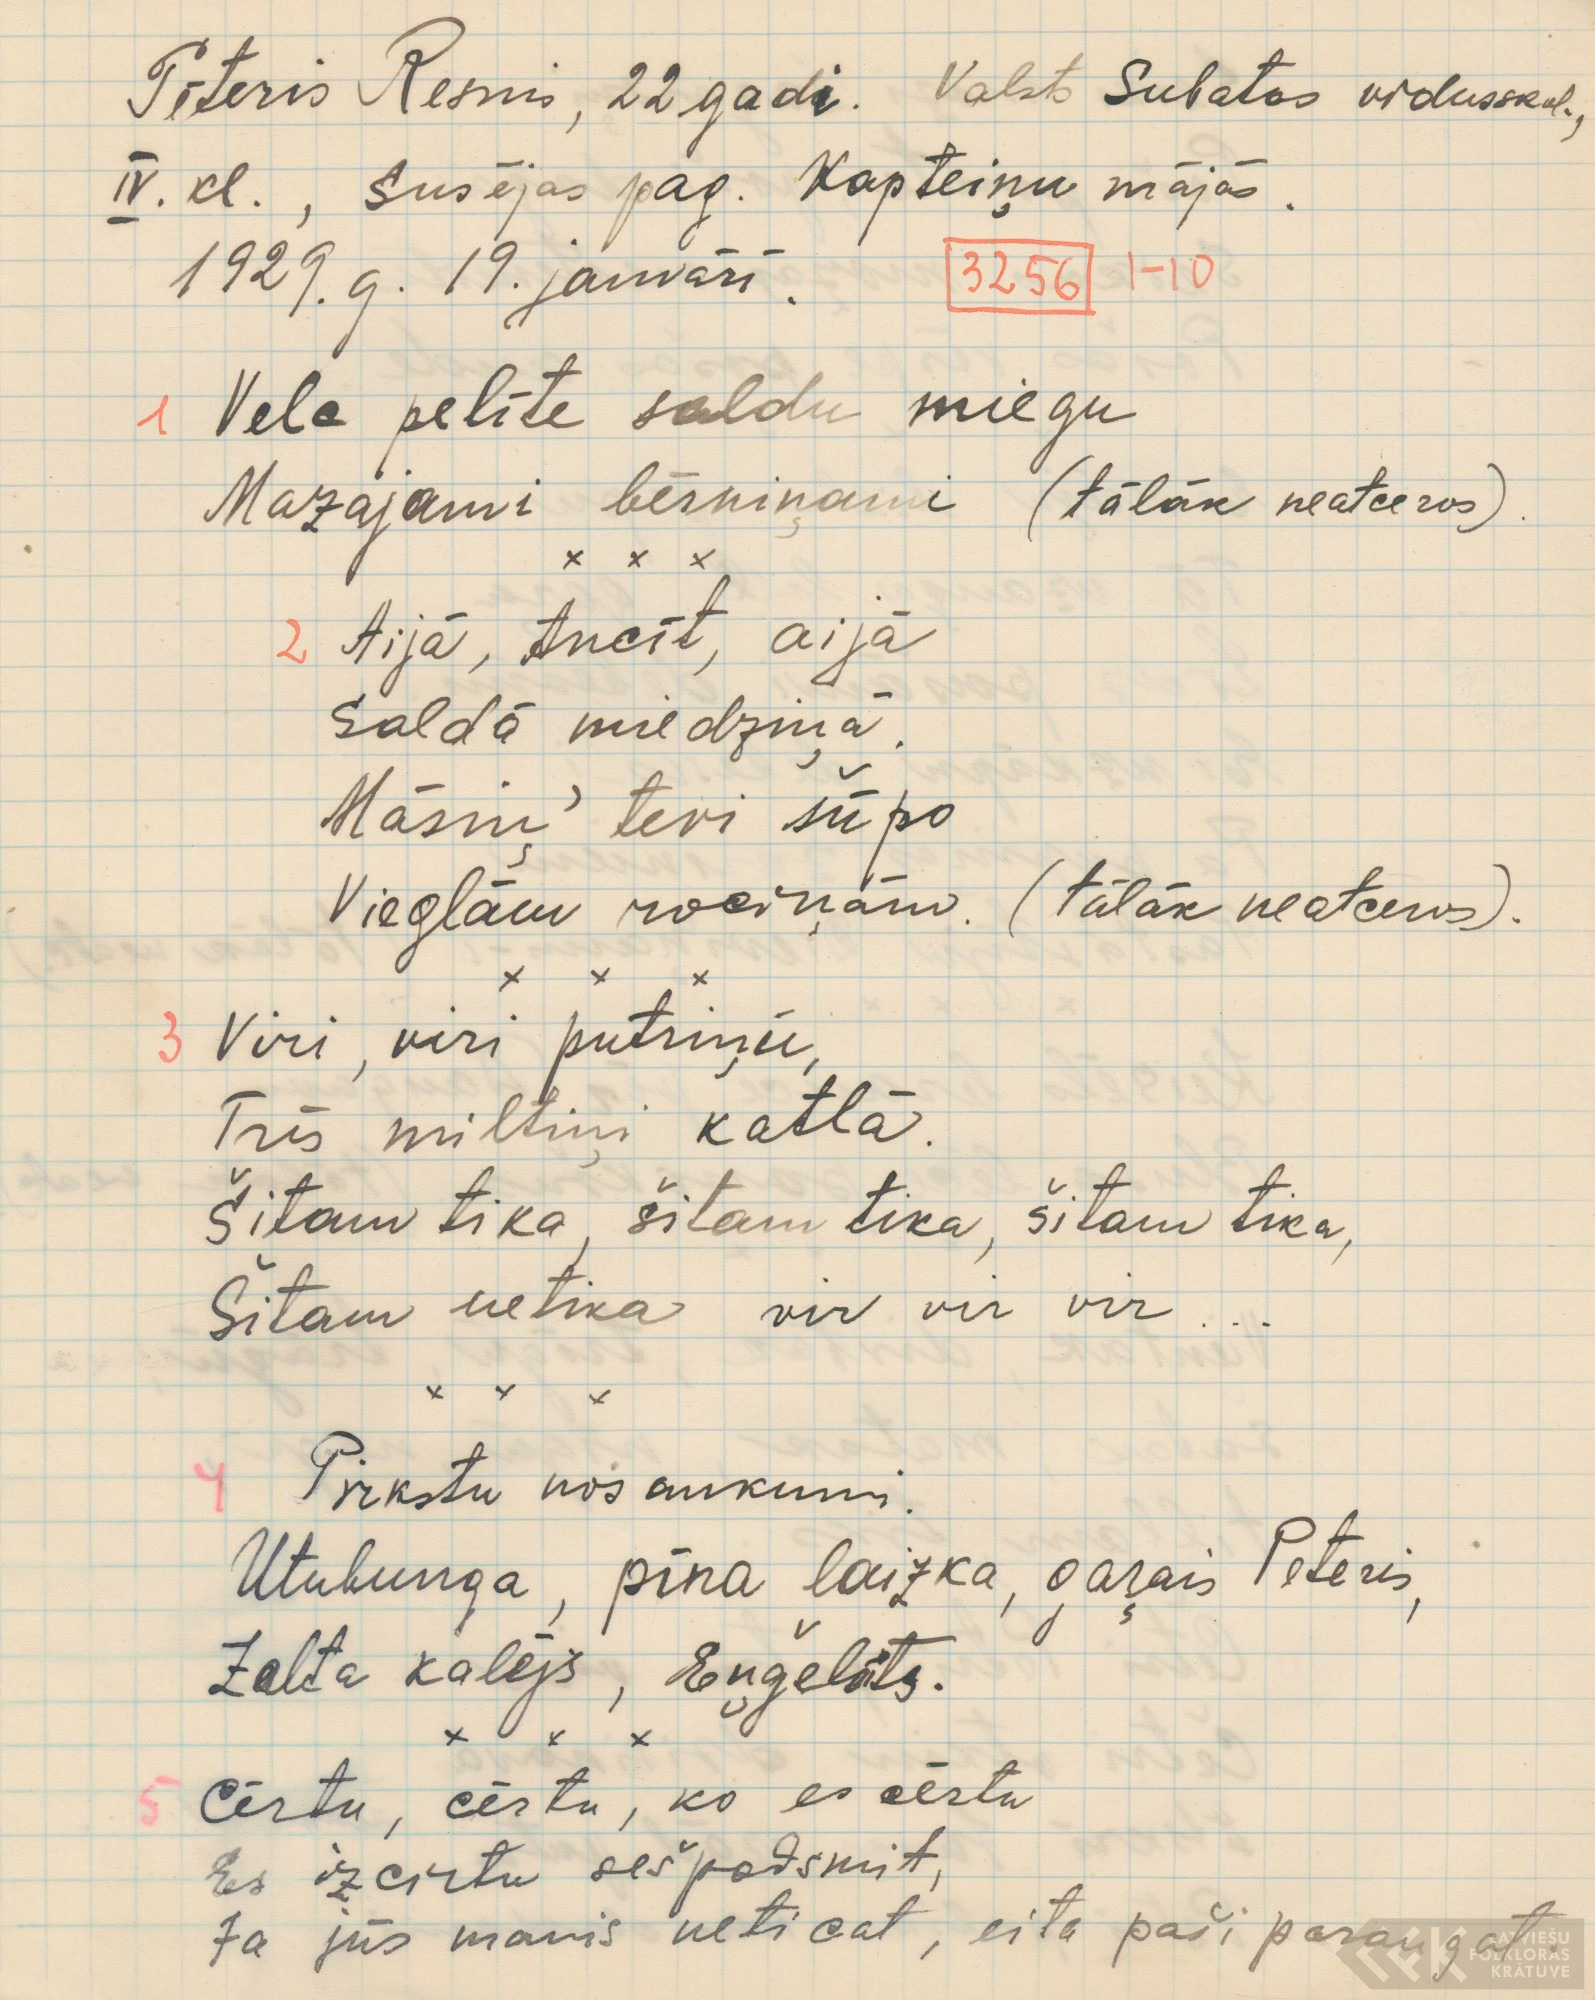 Pēteris Resnis, 22 gadi. Valsts Subatas vidusskol.,
IV. kl., Susējas pag. Kapteiņu mājās.
1929. g. 19. janvārī. 3256 1-10
1 Velc pelīte saldu miegu
Mazajami bērniņami (tālāk neatceros).
x x x
2 Aijā, Ancīt, aijā
Saldā miedziņā.
Māsiņ' tevi šūpo
Vieglām rociņām. (tālāk neatceros).
x x x
3 Viri, viri putriņu,
Trīs miltiņi katlā.
Šitam tika, šitam tika, šitam tika,
Šitam netika vir vir vir ...
x x x
4 Pirkstu nosaukumi.
Utubunga, pīra laizka, gaŗais Pēteris,
Zelta kalējs, Eņģelāts.
x x x
5 Cērtu, cērtu, ko es cērtu
Es izcirtu sešpadsmit,
Ja jūs manis neticat, eita paši paraugat.
LATVIEŠU
FOLKLORAS
KRĀTUVE